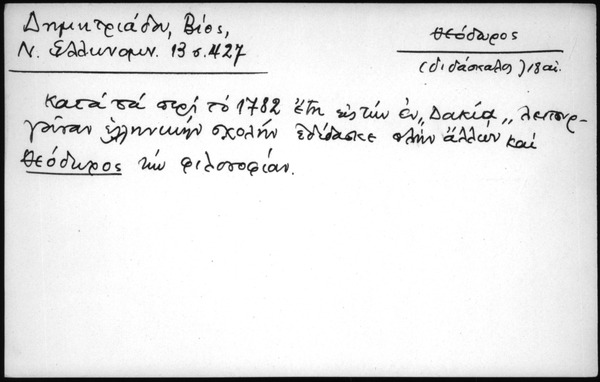 Δημητριάδου, Βίος,
Ν. Ελληνομν. 13 σ. 427
Θεόδωρος
(διδάσκαλος) 18 αι.
Κατά τά περί τό 1782 έτη εις τήν έν „Δακία„ λειτουρ-
γούσαν ελληνικήν σχολήν εδίδασκε πλήν άλλων καί
Θεόδωρος τήν φιλοσοφίαν.